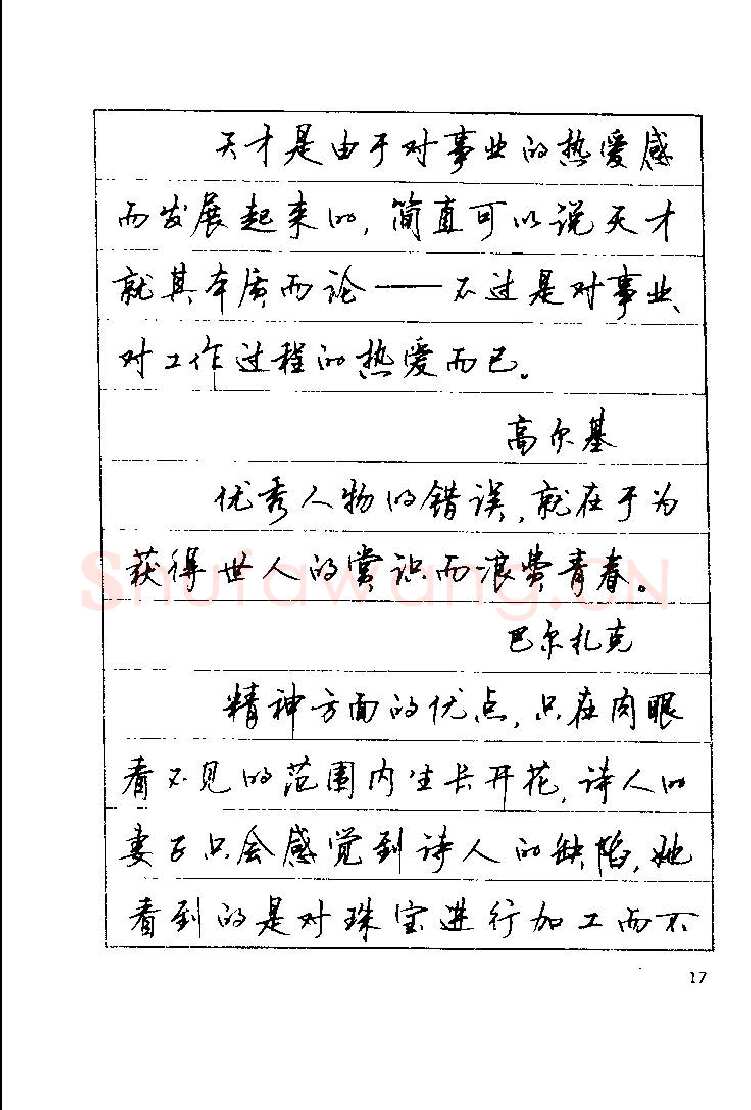 天才是由于对事业的热爱感
而发展起来的,简直可以说天才
就其本质而论——不过是对事业、
对工作过程的热爱而已。
高尔基
优秀人物的错误,就在于为
获得世人的赏识而浪费青春。
巴尔扎克
精神方面的优点,只在肉眼
看不见的范围内生长开花,诗人的
妻子只会感觉到诗人的缺陷,她
看到的是对珠宝进行加工而不
17
Shufawang.CN